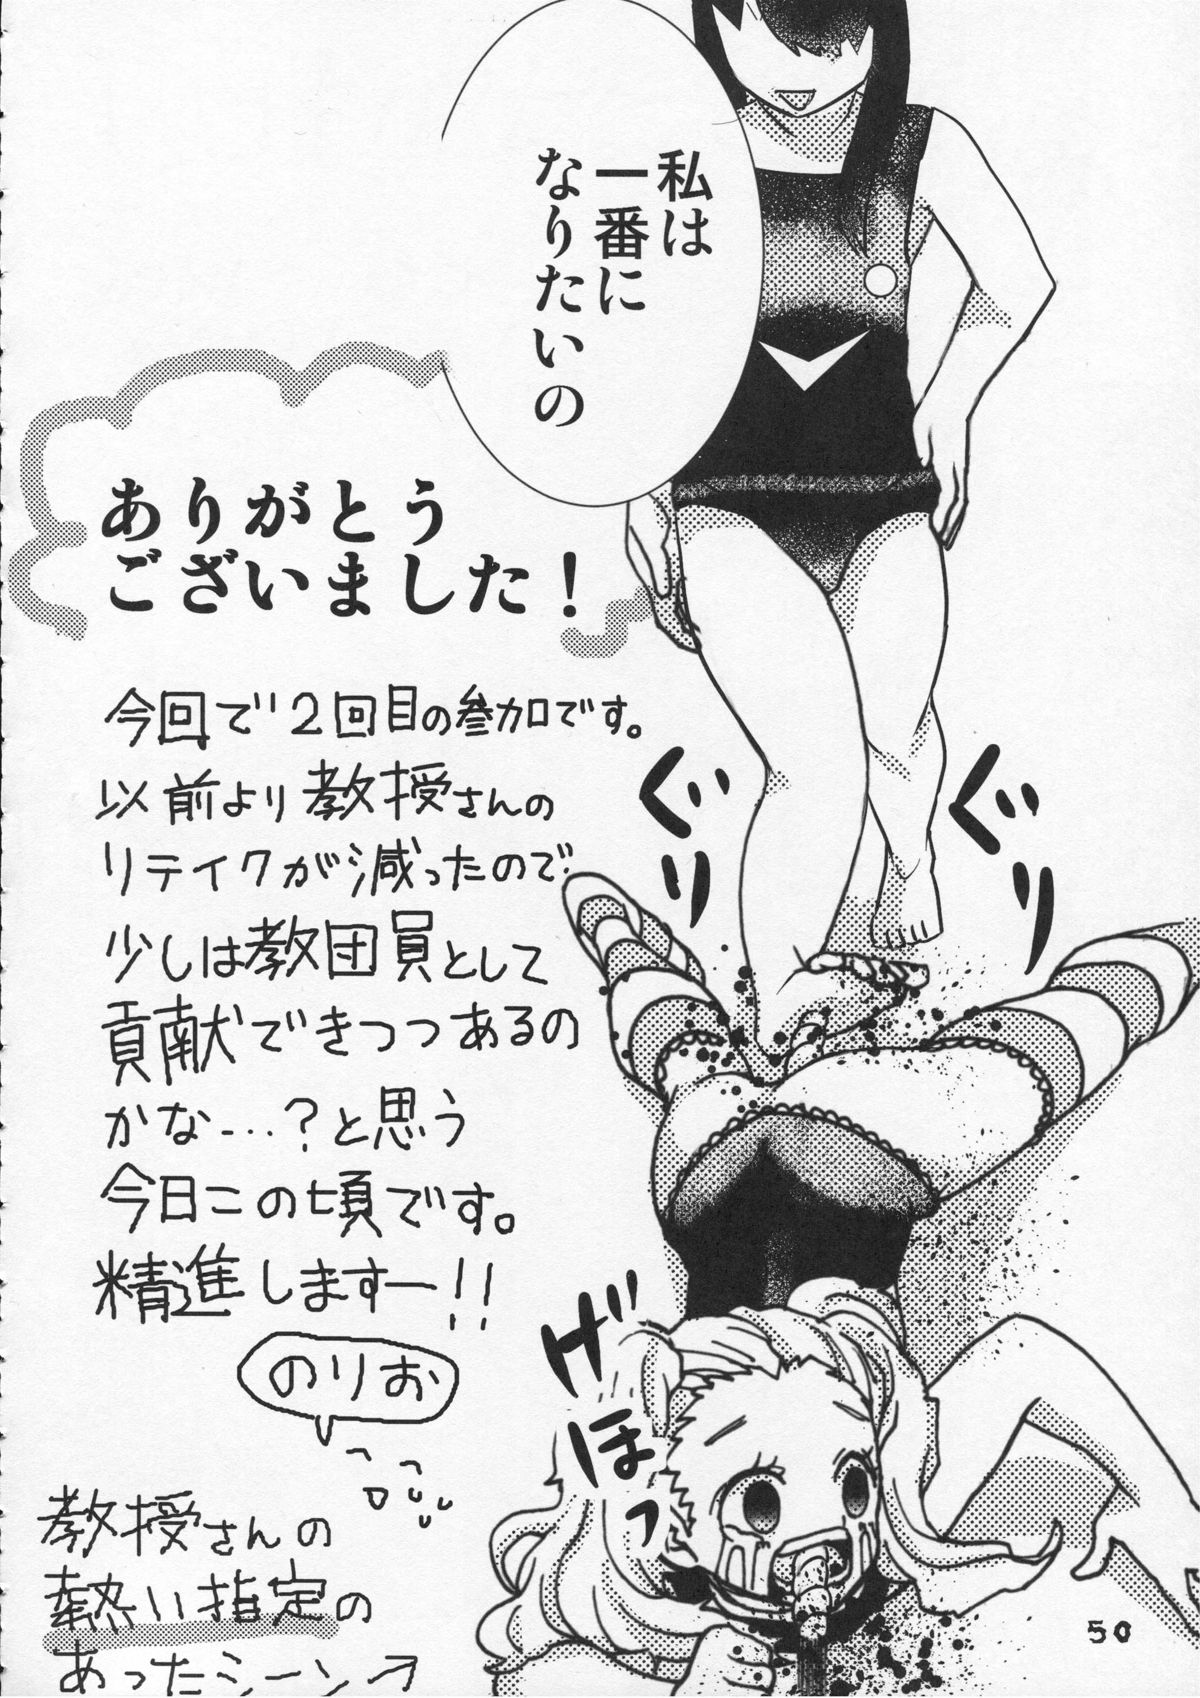 私は
一番に
なりたいの
ありがとう
ございました!
今回で2回目の参加です。
以前より教授さんの
リテイクが減ったので
少しは教団員として
貢献できつつあるの
かな…?と思う
今日この頃です。
精進しますー!!
のりお
教授さんの
熱い指定の
あったシーン→
ぐりっ
ぐりっ
げほっ
50